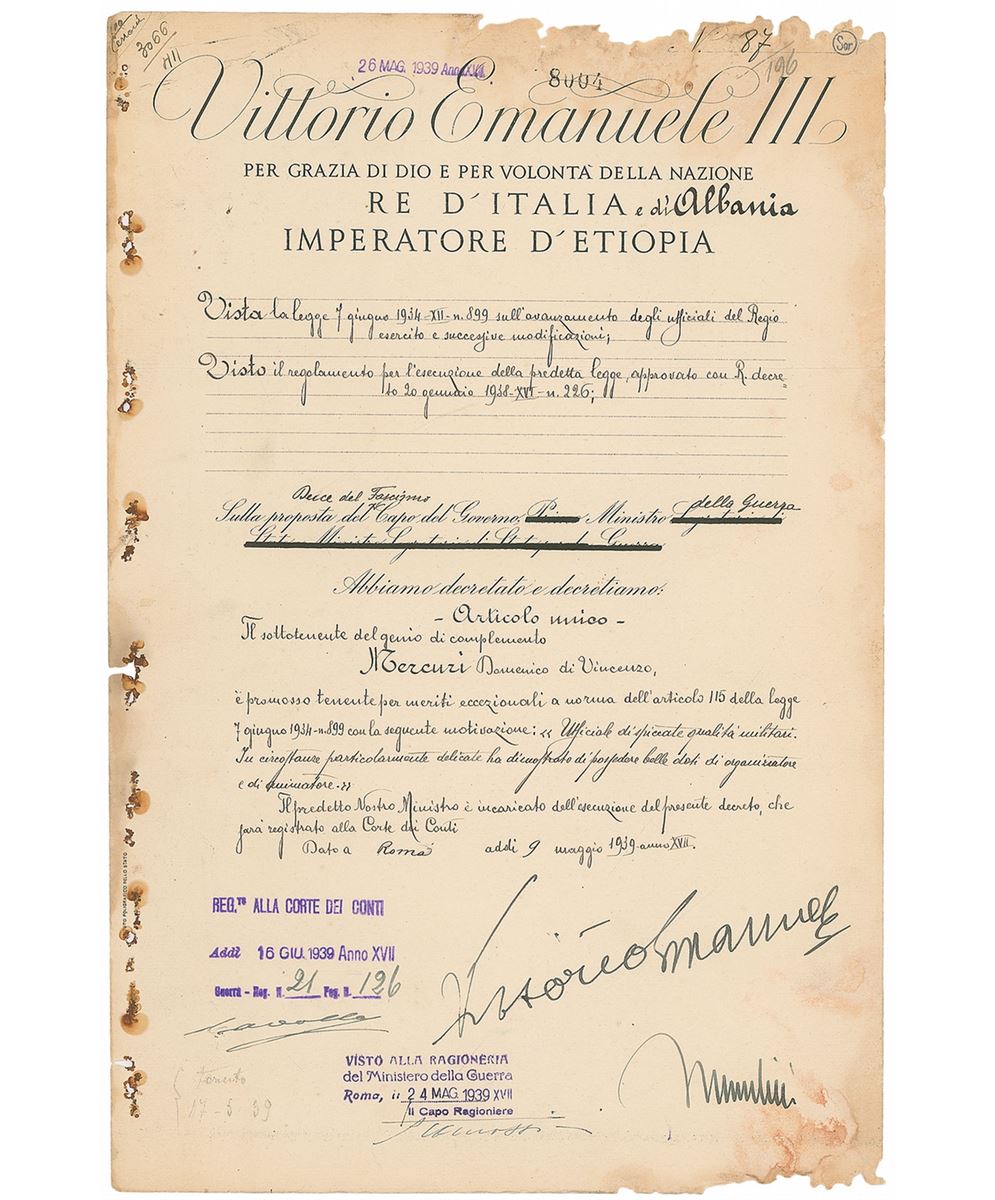 3066
N. 87
Sor
196
26 MAG. 1939 Anno XVII
8004
Vittorio Emanuele III
PER GRAZIA DI DIO E PER VOLONTÀ DELLA NAZIONE
RE D'ITALIA e di Albania
IMPERATORE D'ETIOPIA
Vista la legge 7 giugno 1934-XII-n. 899 sull'avanzamento degli ufficiali del Regio
esercito e successive modificazioni;
Visto il regolamento per l'esecuzione della predetta legge, approvato con R. decre=
to 20 gennaio 1938-XVI-n. 226;
Duce del Fascismo
della Guerra
Sulla proposta del Capo del Governo, Ministro
Abbiamo decretato e decretiamo:
- Articolo unico -
Il sottotenente del genio di complemento
Mercuri Domenico di Vincenzo,
è promosso tenente per meriti eccezionali a norma dell'articolo 115 della legge
7 giugno 1934-n. 899 con la seguente motivazione: « Ufficiale di spiccate qualità militari.
In circostanze particolarmente delicate ha dimostrato di possedere belle doti di organizzatore
e di animatore. »
Il predetto Nostro Ministro è incaricato dell'esecuzione del presente decreto, che
sarà registrato alla Corte dei Conti
Dato a Roma addì 9 maggio 1939-anno XVII.
REG.TO ALLA CORTE DEI CONTI
Addì 16 GIU. 1939 Anno XVII
Guerra - Reg. N. 21 Fog. N. 126
Vittorio Emanuele
Mussolini
VISTO ALLA RAGIONERIA
del Ministero della Guerra
Roma, il 24 MAG. 1939 XVII
Il Capo Ragioniere
17-5-39